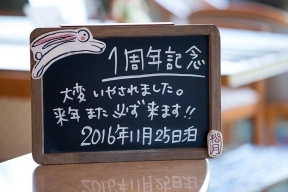 1周年記念
大変いやされました。
来年また必ず来ます!!
2016年11月25日泊
松月